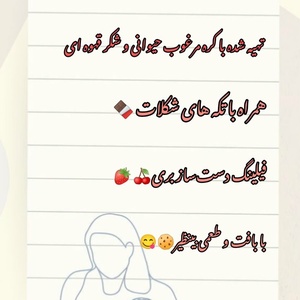 تهیه شده با کره مرغوب حیوانی و شکر قهوه ای
همراه با تکه های شکلات 🍫
فیلینگ دست ساز بری 🍒🍓
با بافت و طعمی بینظیر 🍪😋